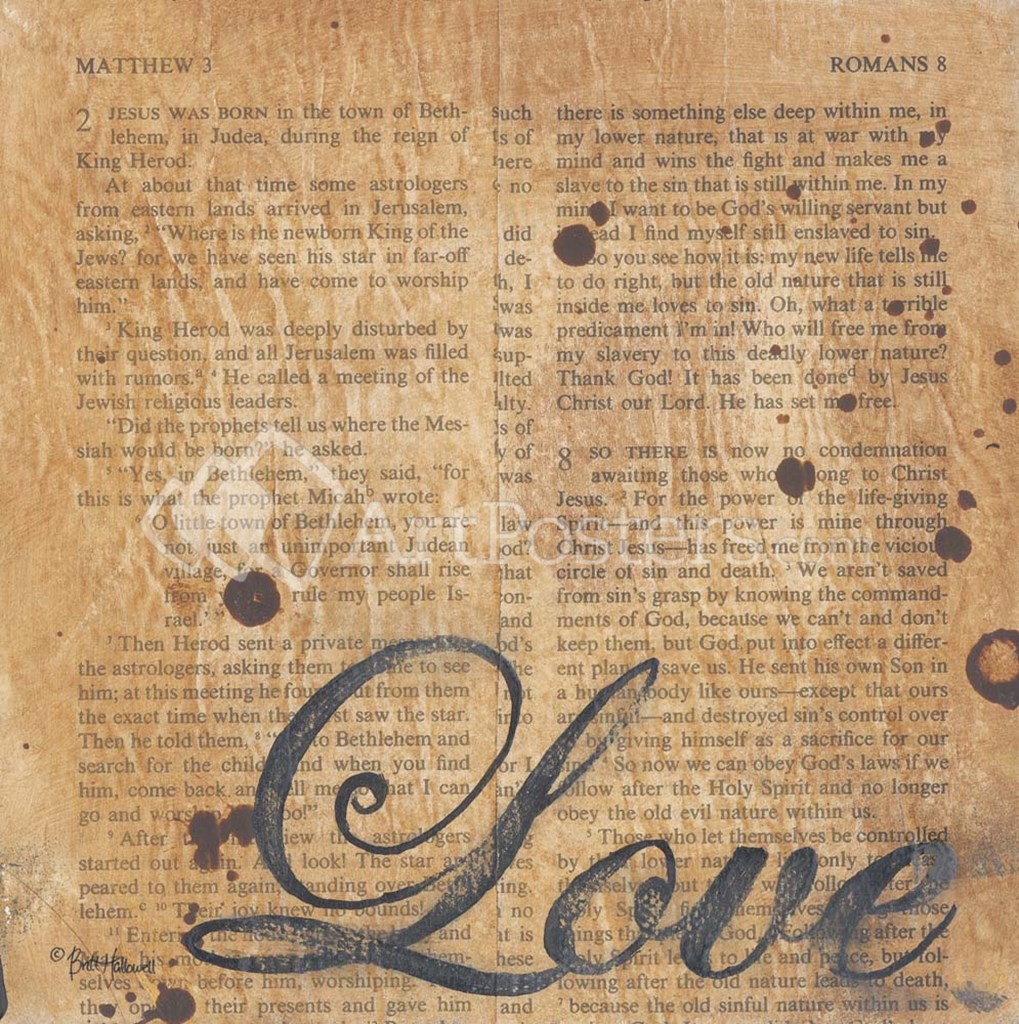 MATTHEW 3
2 JESUS WAS BORN in the town of Beth-
lehem, in Judea, during the reign of
King Herod.
At about that time some astrologers
from eastern lands arrived in Jerusalem,
asking, ² "Where is the newborn King of the
Jews? for we have seen his star in far-off
eastern lands, and have come to worship
him."
³ King Herod was deeply disturbed by
their question, and all Jerusalem was filled
with rumors.ᵃ ⁴ He called a meeting of the
Jewish religious leaders.
"Did the prophets tell us where the Mes-
siah would be born?" he asked.
⁵ "Yes, in Bethlehem," they said, "for
this is what the prophet Micahᵇ wrote:
'O little town of Bethlehem, you are
not just an unimportant Judean
village, for a Governor shall rise
from rule my people Is-
rael.' "
⁷ Then Herod sent a private message to
the astrologers, asking them to come to see
him; at this meeting he found out from them
the exact time when they first saw the star.
Then he told them, ⁸ "Go to Bethlehem and
search for the child. And when you find
him, come back and tell me so that I can
go and worship him too!"
⁹ After this interview the astrologers
started out again. And look! The star ap-
peared to them again, standing over Beth-
lehem.ᶜ ¹⁰ Their joy knew no bounds!
¹¹ Entering the house and
his mother them-
selves down before him, worshiping.
they opened their presents and gave him
such
ts of
here
no
did
de-
h, I
was
was
sup-
lted
lty.
s of
y of
was
law
od?
that
con-
and
od's
the
not
into
or I
an
ing.
no
at is
these
and
ROMANS 8
there is something else deep within me, in
my lower nature, that is at war with my
mind and wins the fight and makes me a
slave to the sin that is still within me. In my
mind I want to be God's willing servant but
instead I find myself still enslaved to sin.
So you see how it is: my new life tells me
to do right, but the old nature that is still
inside me loves to sin. Oh, what a terrible
predicament I'm in! Who will free me from
my slavery to this deadly lower nature?
Thank God! It has been doneᵈ by Jesus
Christ our Lord. He has set me free.
8 SO THERE IS now no condemnation
awaiting those who belong to Christ
Jesus. ² For the power of the life-giving
Spirit—and this power is mine through
Christ Jesus—has freed me from the vicious
circle of sin and death. ³ We aren't saved
from sin's grasp by knowing the command-
ments of God, because we can't and don't
keep them, but God put into effect a differ-
ent plan to save us. He sent his own Son in
a human body like ours—except that ours
are sinful—and destroyed sin's control over
us by giving himself as a sacrifice for our
sins. ⁴ So now we can obey God's laws if we
follow after the Holy Spirit and no longer
obey the old evil nature within us.
⁵ Those who let themselves be controlled
by their lower natures live only to please
themselves, but those who follow after the
Holy Spirit find themselves doing those
things that God. Following after the
Holy Spirit leads to life and peace, but fol-
lowing after the old nature leads to death,
⁷ because the old sinful nature within us is
ArtPosters
Love
© Britt Hallowell